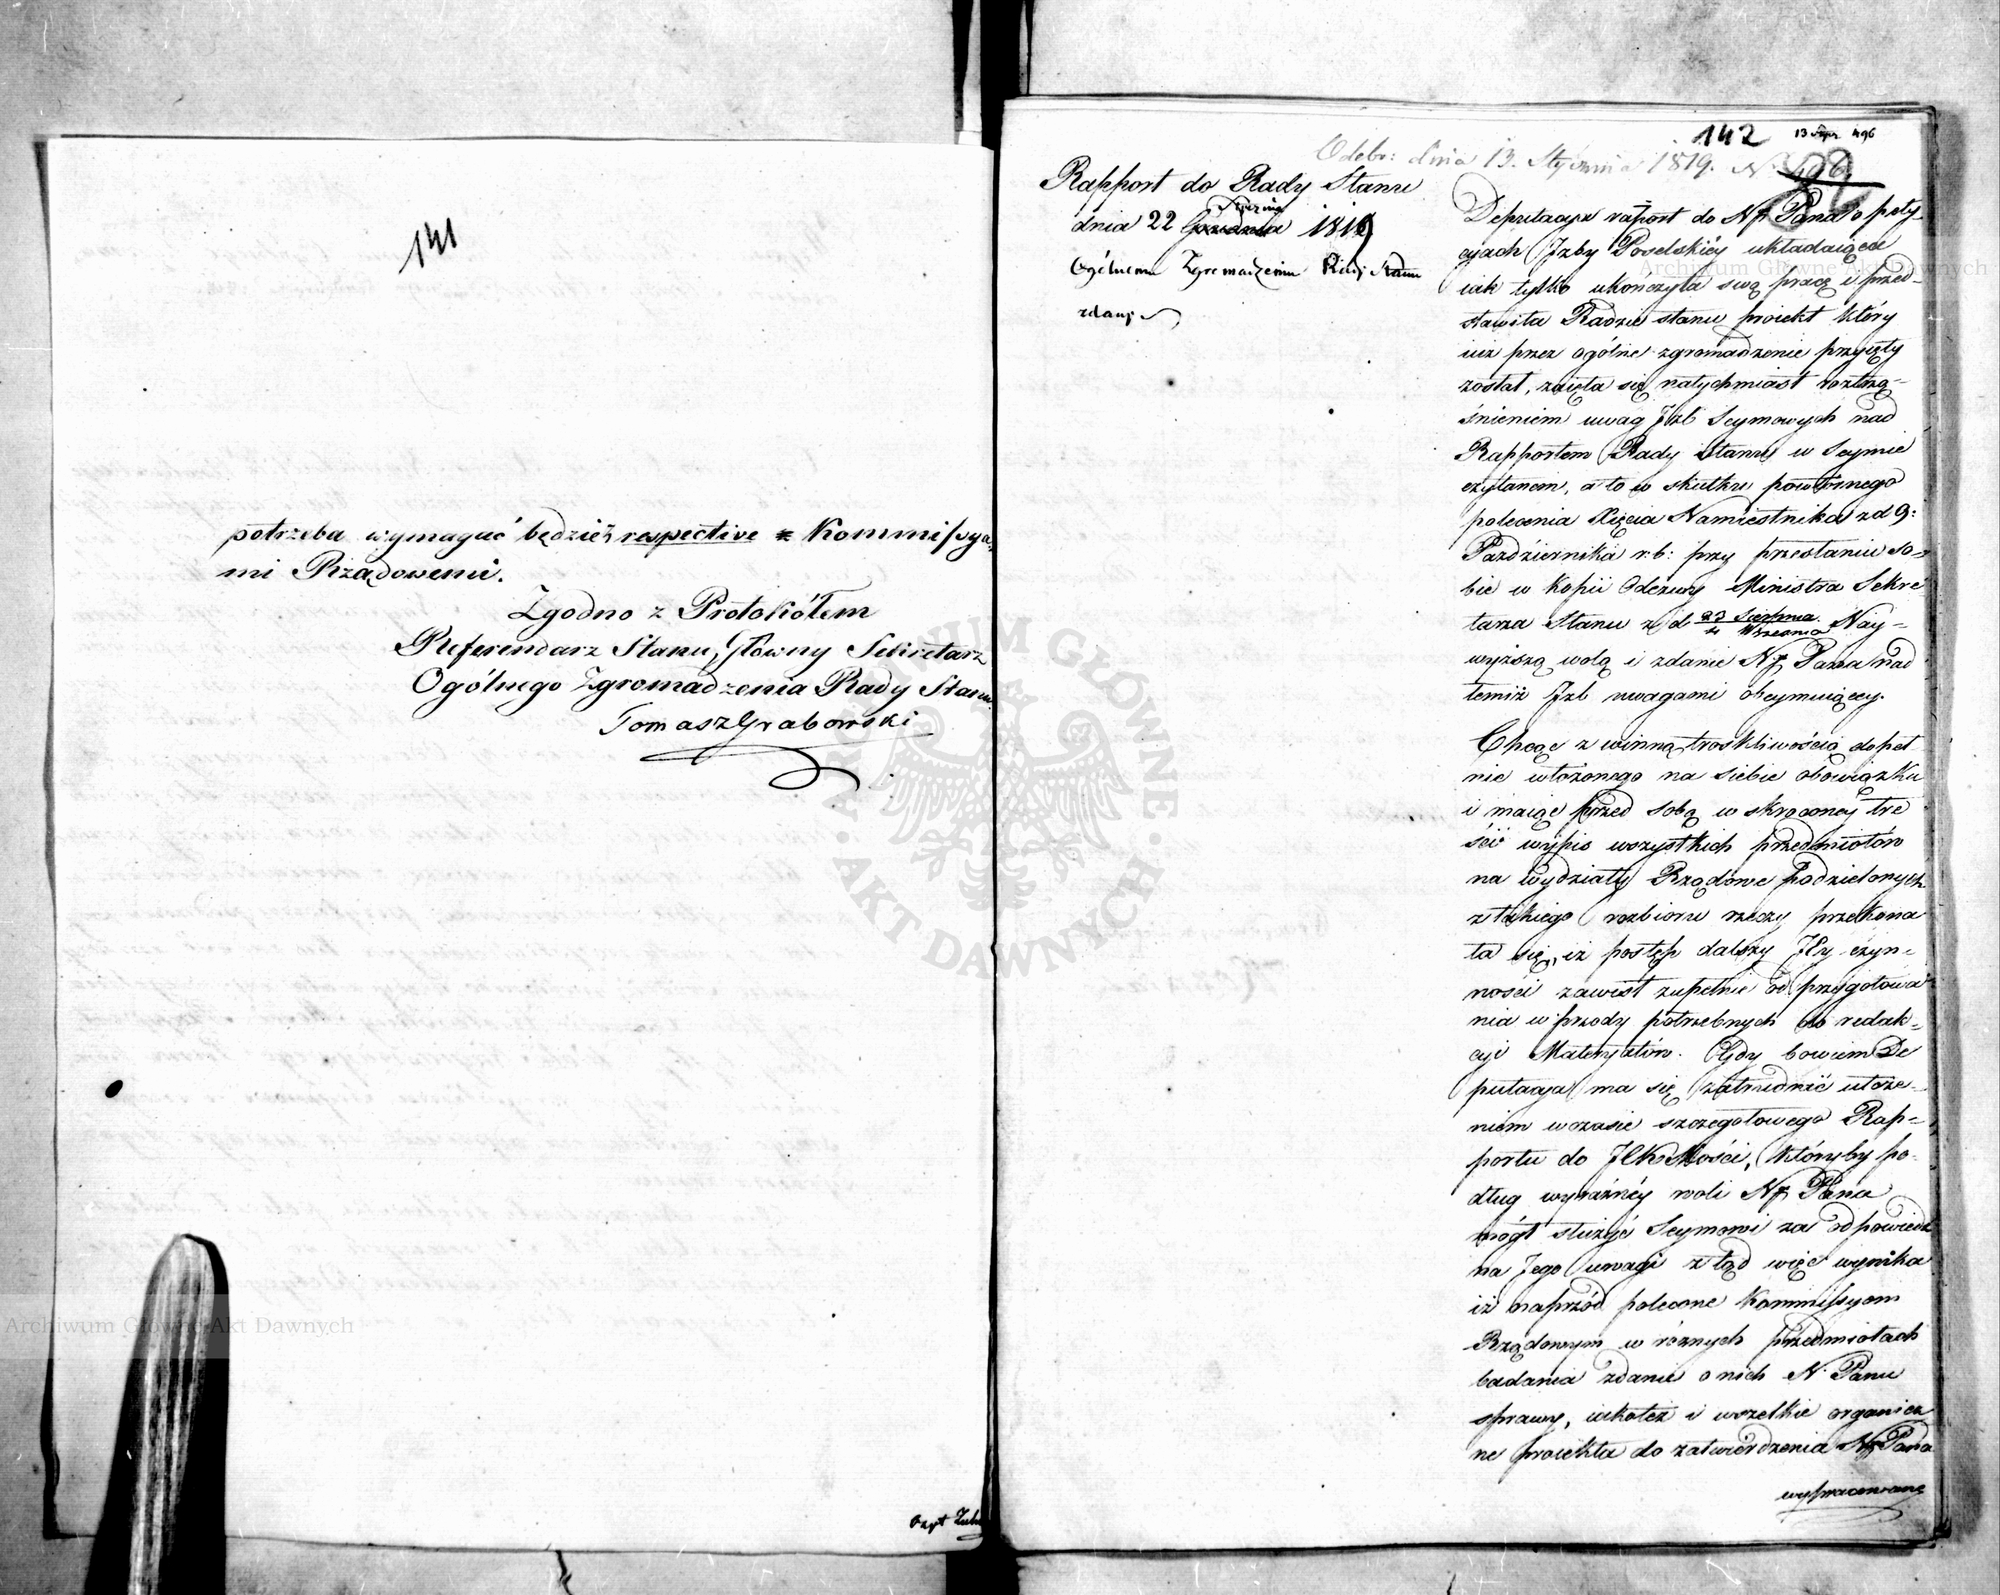 141
potrzeba wymagać będzie z respective Kommissya-
mi Rządowemi.
Zgodno z Protokółem
Referendarz Stanu, Główny Sekretarz
Ogólnego Zgromadzenia Rady Stanu
Tomasz Grabowski
142
Odebr: dnia 13. Stycznia 1819. N.
Rapport do Rady Stanu
dnia 22 Grudnia Stycznia 1819
Ogólnemu Zgromadzeniu Rady Stanu
zdany
Deputacya raport do Nj Pana o pety-
cyach Jzby Poselskiéy układaiąca
iak tylko ukończyła swą pracę i przed-
stawiła Radzie stanu proiekt który
iuż przez ogólne zgromadzenie przyięty
został, zaięła się natychmiast roztrzą-
śnieniem uwag Jzb Seymowych nad
Rapportem Rady Stanu w Seymie
czytanem, a to w skutku powtórnego
polecenia Xięcia Namiestnika z d 9:
Października r.b: przy przesłaniu so-
bie w kopii Odezwy Ministra Sekre
tarza Stanu z d 23 Sierpnia / 4 Września Nay-
wyższą wolą i zdanie Nj Pana nad
temiż Jzb uwagami obeymuiącey.
Chcąc z winną troskliwością dopeł
nić włożonego na siebie obowiązku
i maiąc przed sobą w skróconey tre
ści wypis wszystkich przedmiotów
na wydziały Rządowe podzielonych
z takiego rozbioru rzeczy przekona
ła się, iż postęp dalszy Jey czyn-
ności zawisł zupełnie od przygotowa
nia w przody potrzebnych do redak-
cyi Materyałów. Gdy bowiem De
putacya ma się zatrudnić ułoże-
niem w czasie szczegółowego Rap-
portu do JCK Mości, któryby po-
dług wyraźnéy woli Nj Pana
mógł służyć Seymowi za odpowiedź
na Jego uwagi z tąd więc wynika
iż naprzód polecone Kommissyom
Rządowym w różnych przedmiotach
badania zdanie o nich N. Panu
sprawy, iakoteż i wszelkie organicz
ne proiekta do zatwierdzenia Nj Pana
wypracowane
Archiwum Główne Akt Dawnych
Archiwum Główne Akt Dawnych
ARCHIWUM GŁÓWNE · AKT DAWNYCH ·